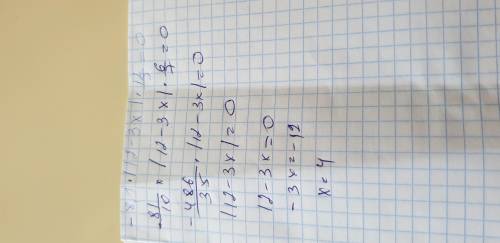 -8,1 · |12-3x| · 1 = 0
-81/10 × |12-3x| · 6/7 = 0
-486/35 · |12-3x| = 0
|12-3x| = 0
12-3x = 0
-3x = -12
x = 4